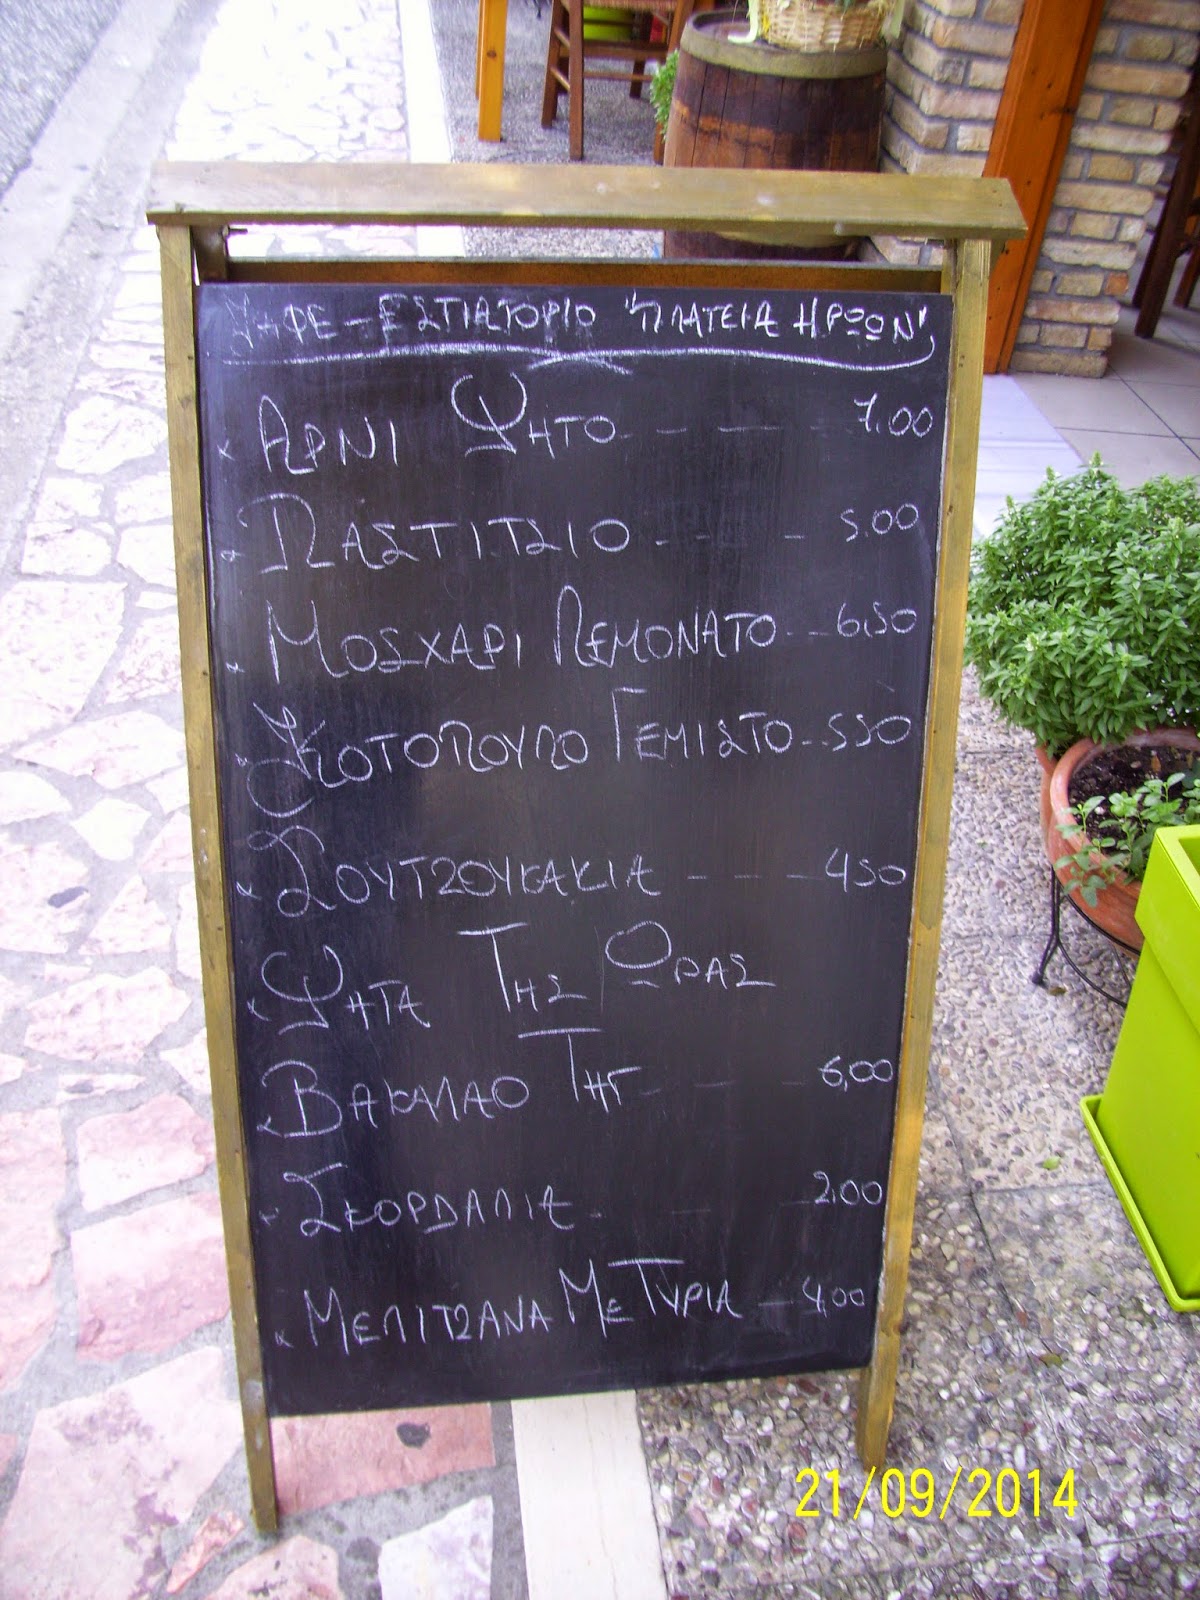 ΚΑΦΕ-ΕΣΤΙΑΤΟΡΙΟ "ΠΛΑΤΕΙΑ ΗΡΩΩΝ"
× ΑΡΝΙ ΨΗΤΟ - - - - 7,00
× ΠΑΣΤΙΤΣΙΟ - - - - 5.00
× ΜΟΣΧΑΡΙ ΛΕΜΟΝΑΤΟ - - 6,50
× ΚΟΤΟΠΟΥΛΟ ΓΕΜΙΣΤΟ - - 550
× ΣΟΥΤΖΟΥΚΑΚΙΑ - - - 450
× ΨΗΤΑ ΤΗΣ ΩΡΑΣ
× ΒΑΚΑΛΑΟ ΤΗΓ - - - 6,00
× ΣΚΟΡΔΑΛΙΑ - - - 2.00
× ΜΕΛΙΤΖΑΝΑ ΜΕ ΤΥΡΙΑ - - 4,00
21/09/2014